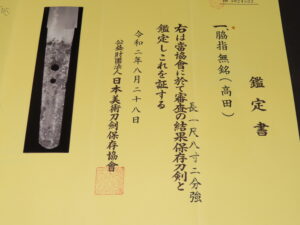 鑑定書
一、脇指 無銘(高田)
長一尺八寸二分強
右は當協會に於て審査の結果保存刀剣と
鑑定しこれを証する
令和二年八月二十八日
公益財團法人日本美術刀剣保存協會